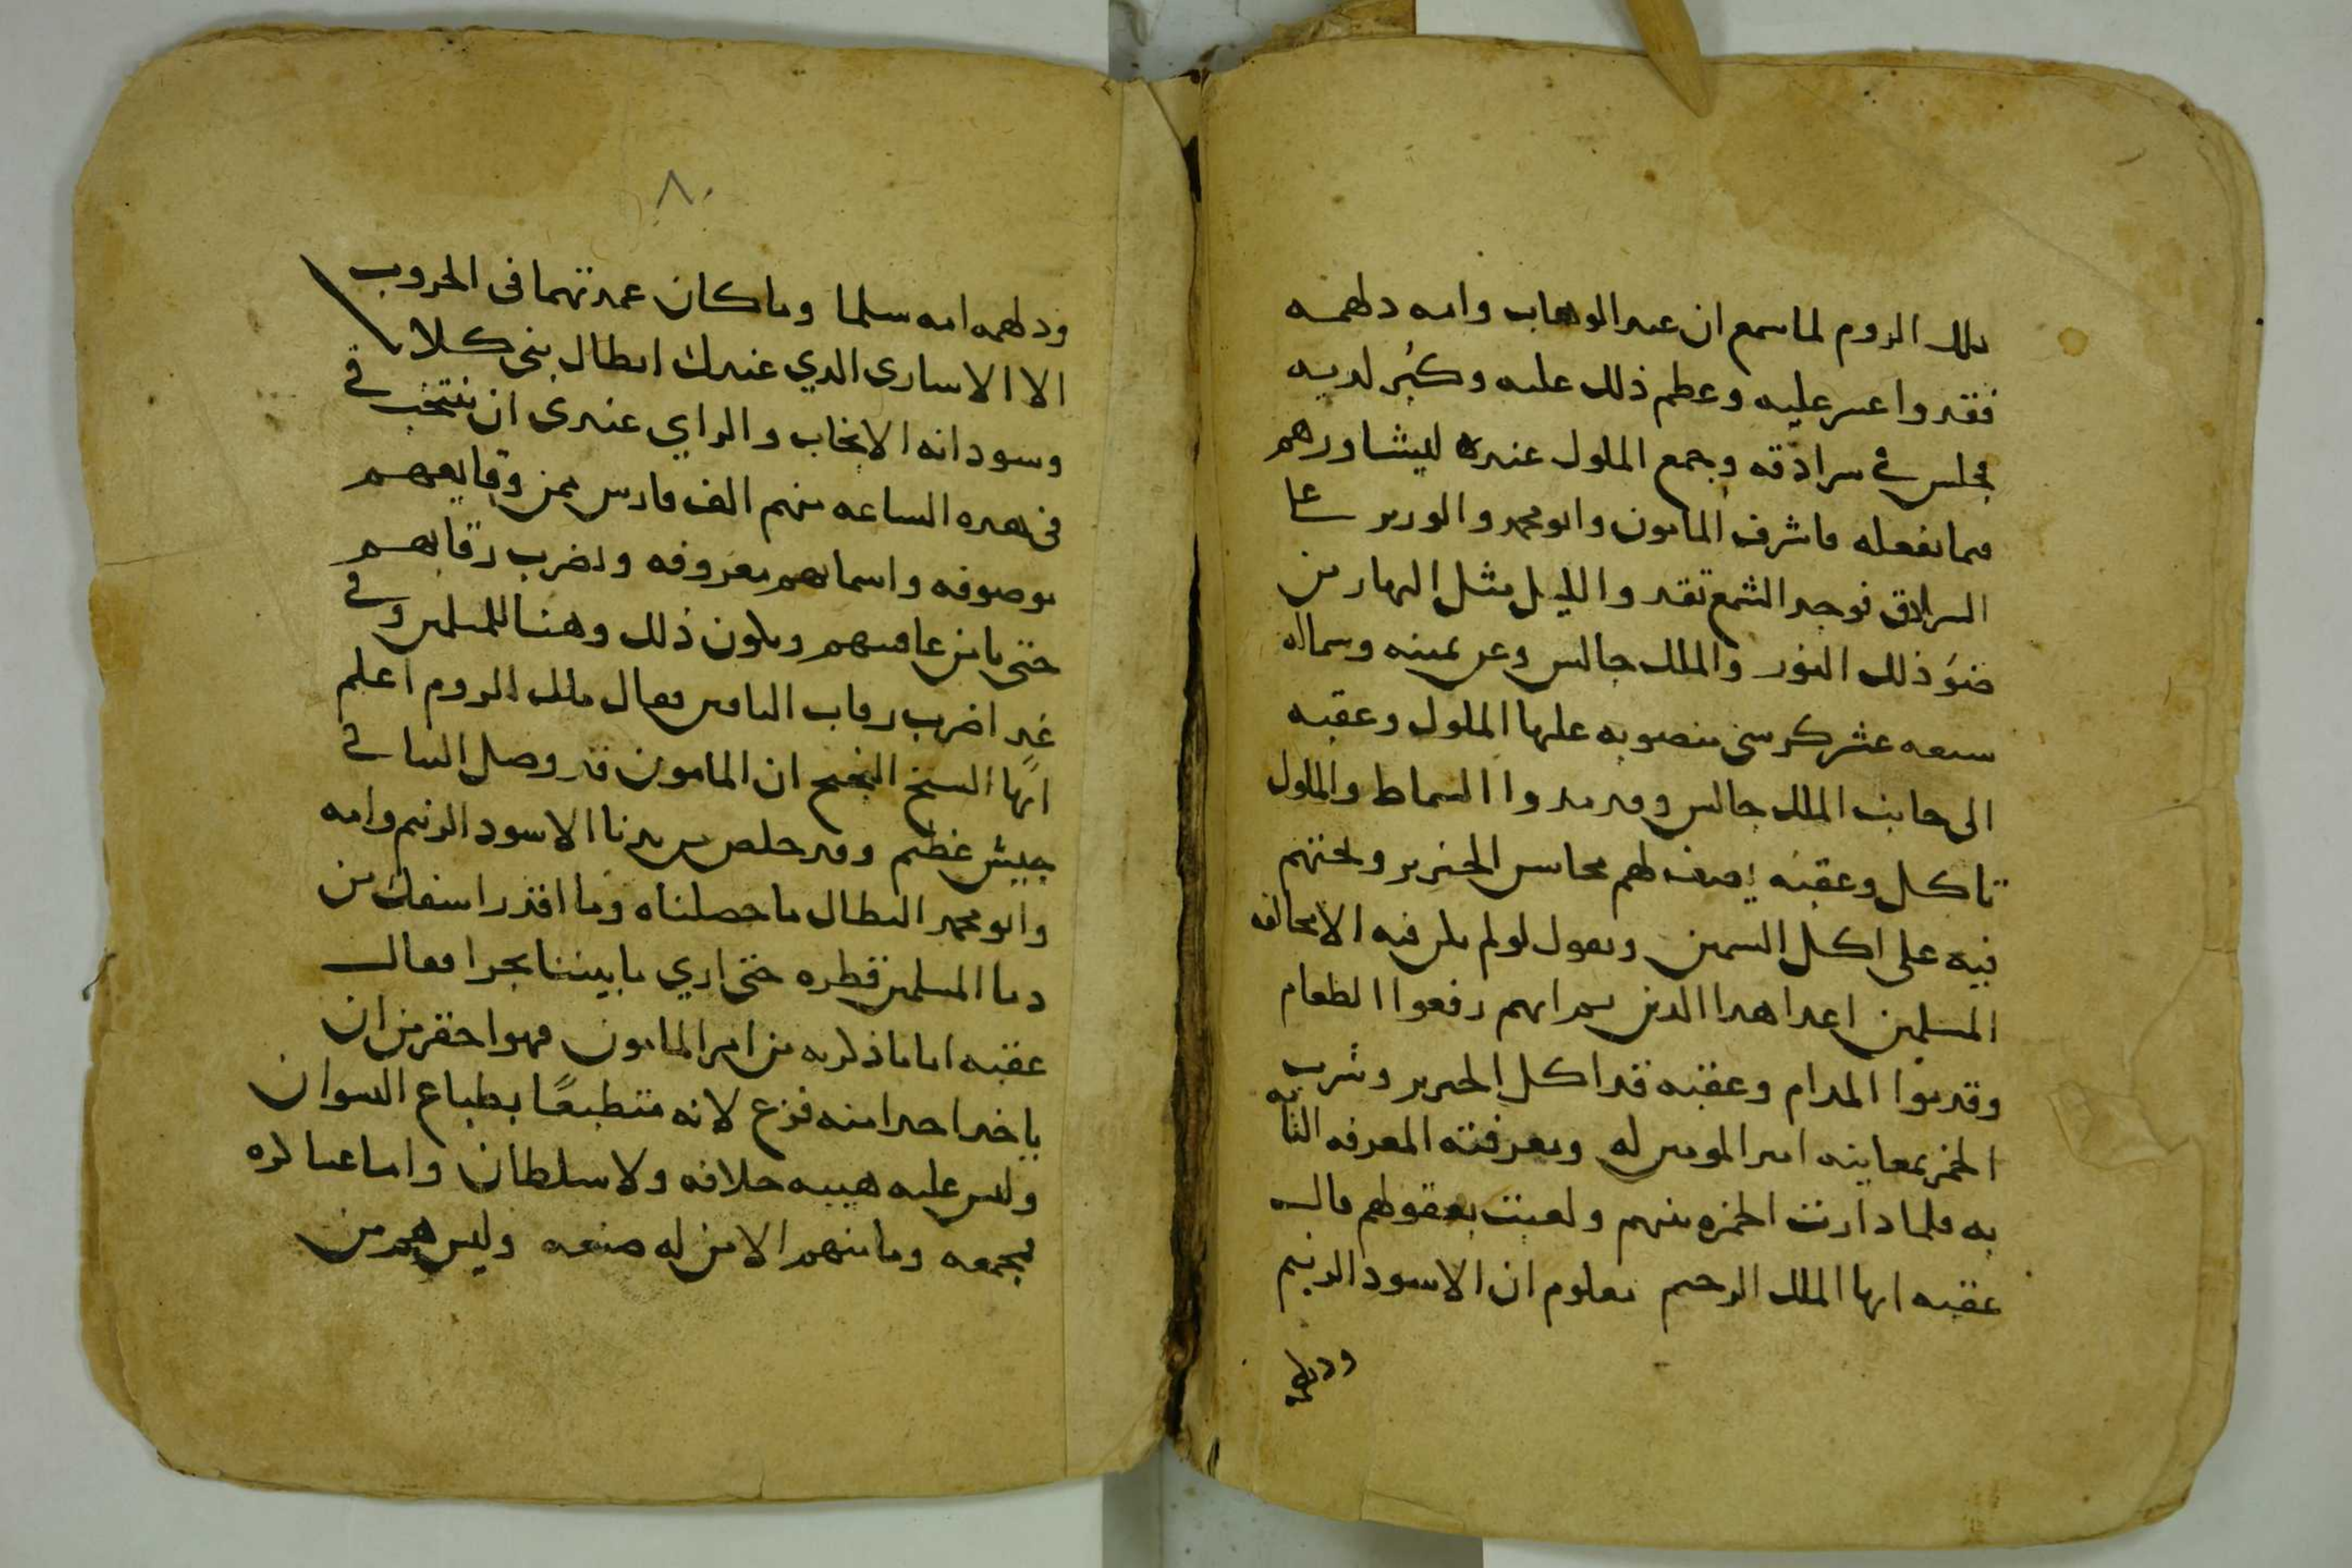 ملك الروم لما سمع ان عبد الوهاب وامه دلهمه
فقدوا عسر عليه وعظم ذلك عليه وكبُر لديه
فجلس في سرادقه وجمع الملوك عنده ليشاورهم
فيما يفعله فاشرف المامون وابو محمد والوزير علي
السرادق فوجد الشمع تقد والليل مثل النهار من
ضوء ذلك النور والملك جالس وعن يمينه وشماله
سبعه عشر كرسي منصوبه عليها الملوك وعقبه
الى جانب الملك جالس وقد مدوا السماط والملوك
تاكل وعقبه يصف لهم محاسن الخنزير ويحثهم
فيه على اكل السمين ويقول لو لم يكن فيه الا مخالفه
المسلمين اعدا هدا الدين ثم انهم رفعوا الطعام
وقدموا المدام وعقبه قد اكل الخنزير وشرب
الخمر بمعاينه امير المومنين له ومعرفته المعرفه التامه
به فلما دارت الخمره بينهم ولعبت بعقولهم قال
عقبه ايها الملك الرحيم معلوم ان الاسود الزنيم
ودلهمه
٨٠
ودلهمه امه سلما وما كان عمدتهما في الحروب
الا الاسارى الدي عندك ابطال بني كلاب
وسودانه الانجاب والراي عندى ان ننتخب في
في هده الساعه منهم الف فارس ممن وقايعهم
موصوفه واسماهم معروفه ونضرب رقابهم
حتى نامن عاقبتهم ويكون ذلك وهنا للمسلمين وفي
غد اضرب رقاب الباقين فقال ملك الروم اعلم
ايها الشيخ النجيح ان المامون قد وصل الينا في
جيش عظيم وقد خلص من يدنا الاسود الزنيم وامه
وابو محمد البطال ما حصلناه وما اقدر اسفك من
دما المسلمين قطره حتى اري ما بيننا يجرا فقال
عقبه اما ما ذكرته من امر المامون فهوا حقر من ان
ياخد احدا منه فزع لانه متطبعًا بطباع النسوان
وليس عليه هيبه خلافه ولا سلطان واما عساكره
مجمعه وما منهم الا من له صنعه وليس هم من